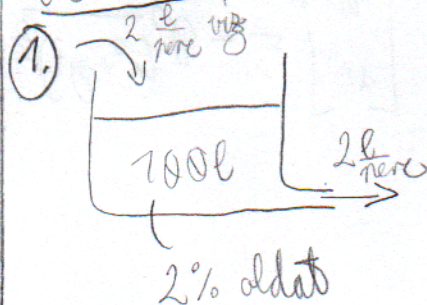 1.
2 l/perc víz
100 l
2 l/perc
2% oldat